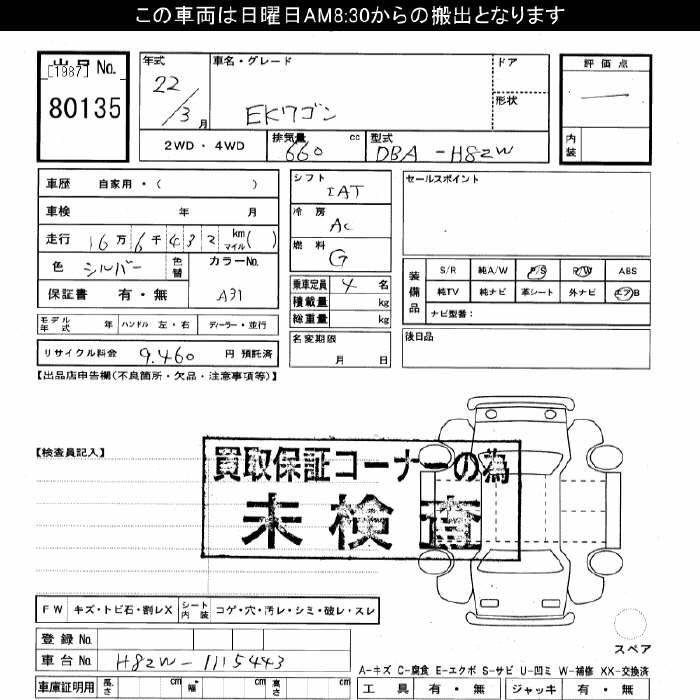 この車両は日曜日AM8:30からの搬出となります
出品 No.
[1987]
80135
年式
22/3 月
車名・グレード
EKワゴン
ドア
形状
評価点
—
内装
2WD・4WD
排気量 660 cc
型式 DBA-H82W
車歴 自家用・( )
車検 年 月
走行 16万6千432 km マイル ( )
色 シルバー
色替
カラーNo. A31
保証書 有・無
シフト IAT
冷房 AC
燃料 G
乗車定員 4 名
積載量 kg
総重量 kg
名変期限
月 日
セールスポイント
装備品
S/R 純A/W P/S P/W ABS
純TV 純ナビ 革シート 外ナビ エアB
ナビ型番:
後日品
モデル年式 年 ハンドル 左・右 ディーラー・並行
リサイクル料金 9,460 円 預託済
【出品店申告欄(不良箇所・欠品・注意事項等)】
【検査員記入】
買取保証コーナーの為
未検査
FW キズ・トビ石・割レX シート内装 コゲ・穴・汚レ・シミ・破レ・スレ
登録 No.
車台 No. H82W-1115443
車庫証明用 長さ cm 幅 cm 高さ cm
スペア
A-キズ C-腐食 E-エクボ S-サビ U-凹ミ W-補修 XX-交換済
工具 有・無 ジャッキ 有・無